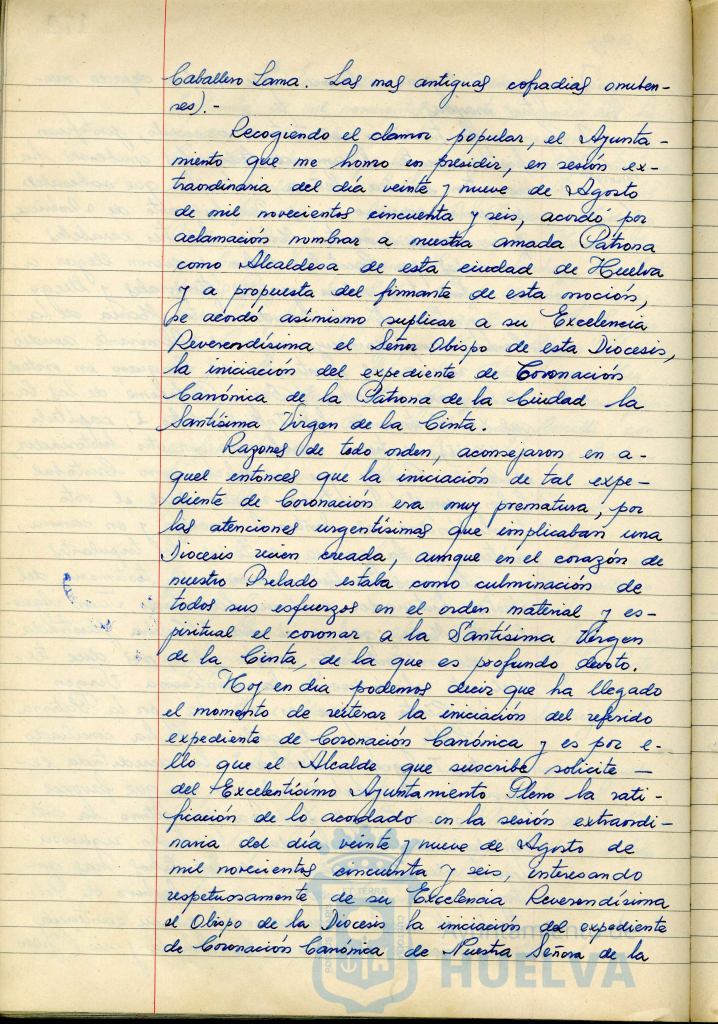 Caballero Lama. Las mas antiguas cofradias onuben-
ses).-
Recogiendo el clamor popular, el Ayunta-
miento que me honro en presidir, en sesión ex-
traordinaria del día veinte y nueve de Agosto
de mil novecientos cincuenta y seis, acordó por
aclamación nombrar a nuestra amada Patrona
como Alcaldesa de esta ciudad de Huelva
y a propuesta del firmante de esta moción,
se acordó asimismo suplicar a su Excelencia
Reverendísima el Señor Obispo de esta Diocesis,
la iniciación del expediente de Coronación
Canónica de la Patrona de la Ciudad la
Santísima Virgen de la Cinta.
Razones de todo orden, aconsejaron en a-
quel entonces que la iniciación de tal expe-
diente de Coronación era muy prematura, por
las atenciones urgentísimas que implicaban una
Diocesis recien creada, aunque en el corazón de
nuestro Prelado estaba como culminación de
todos sus esfuerzos en el orden material y es-
piritual el coronar a la Santísima Virgen
de la Cinta, de la que es profundo devoto.
Hoy en dia podemos decir que ha llegado
el momento de reiterar la iniciación del referido
expediente de Coronación Canónica y es por e-
llo que el Alcalde que suscribe solicite —
del Excelentísimo Ayuntamiento Pleno la rati-
ficación de lo acordado en la sesión extraordi-
naria del día veinte y nueve de Agosto de
mil novecientos cincuenta y seis, interesando
respetuosamente de su Excelencia Reverendísima
el Obispo de la Diocesis la iniciación del expediente
de Coronación Canónica de Nuestra Señora de la
HUELVA